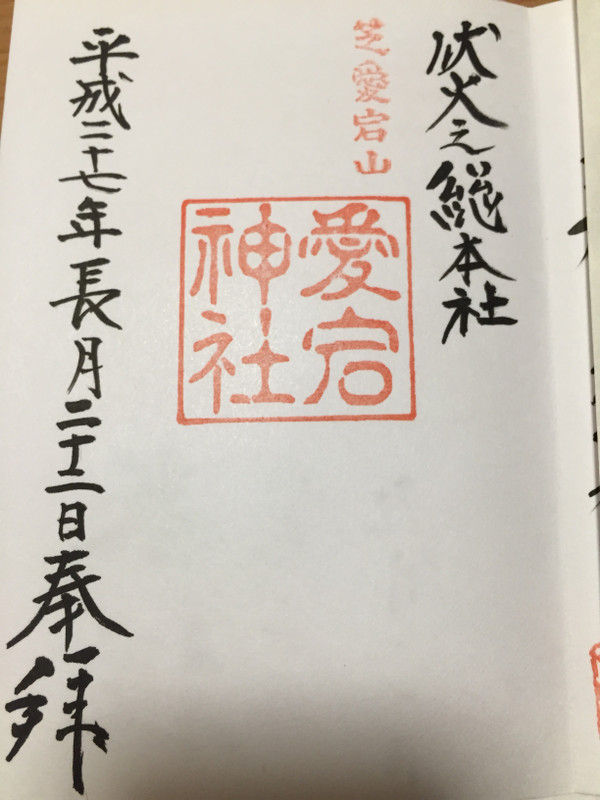 伏火之総本社
芝愛宕山
愛宕
神社
平成二十七年長月二十二日奉拝